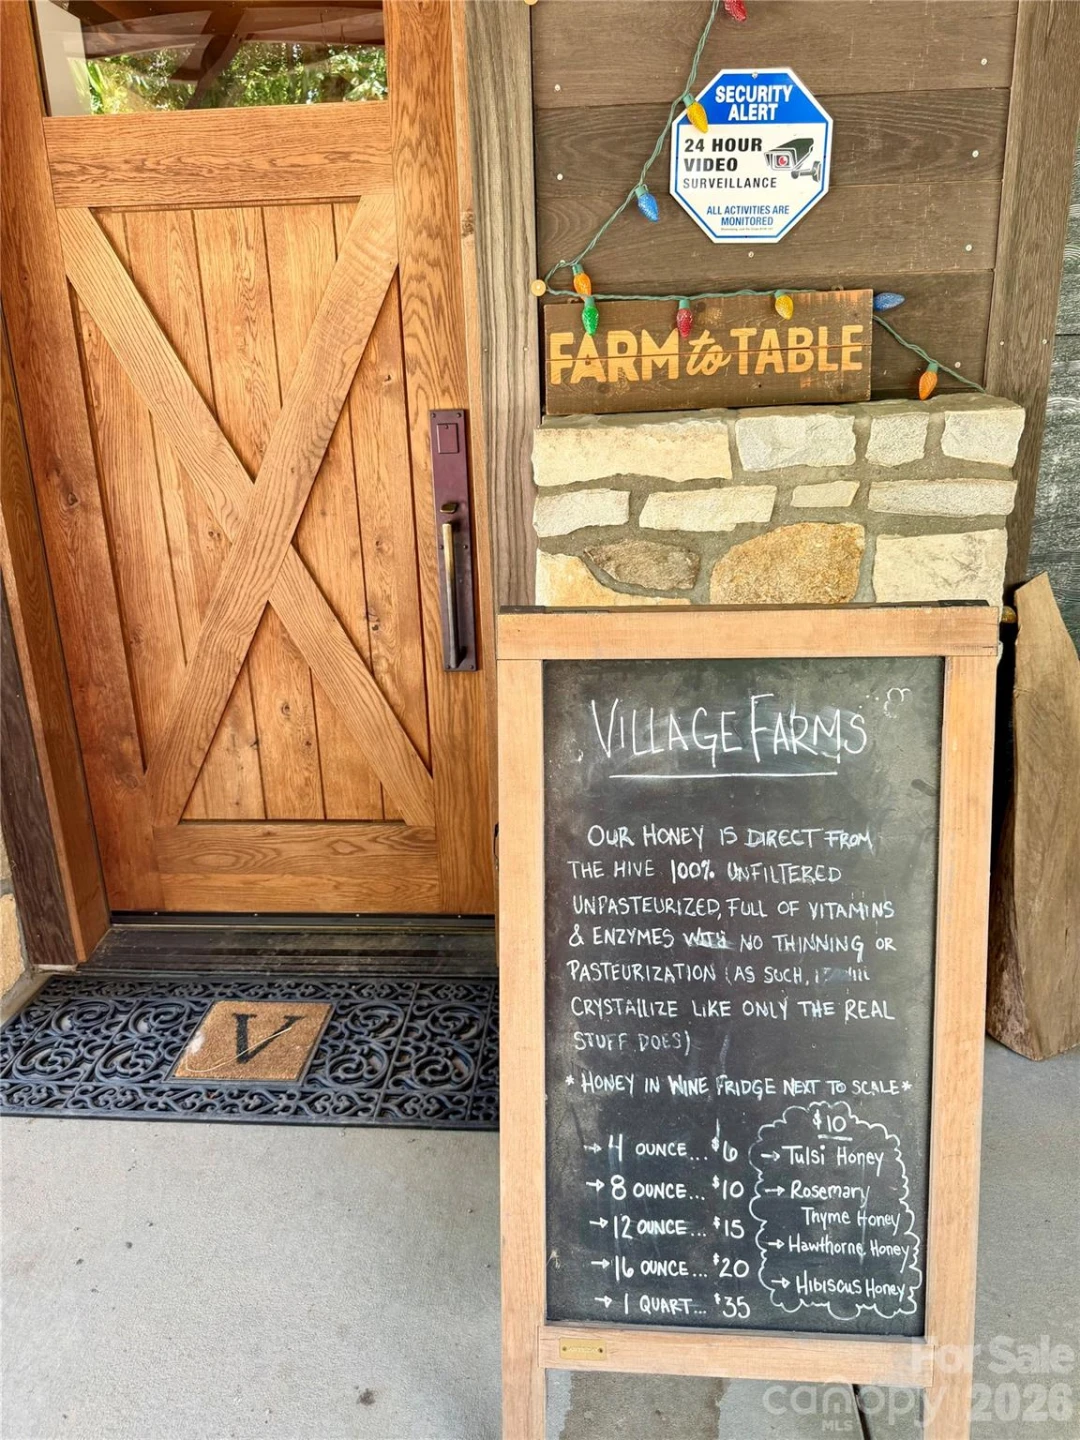 SECURITY
ALERT
24 HOUR
VIDEO
SURVEILLANCE
ALL ACTIVITIES ARE
MONITORED
FARM to TABLE
VILLAGE FARMS
OUR HONEY IS DIRECT FROM
THE HIVE 100% UNFILTERED
UNPASTEURIZED, FULL OF VITAMINS
& ENZYMES WITH NO THINNING OR
PASTEURIZATION (AS SUCH, IT WILL
CRYSTALLIZE LIKE ONLY THE REAL
STUFF DOES)
*HONEY IN WINE FRIDGE NEXT TO SCALE*
→ 4 OUNCE... $6
→ 8 OUNCE... $10
→ 12 OUNCE... $15
→ 16 OUNCE... $20
→ 1 QUART... $35
$10
→ Tulsi Honey
→ Rosemary
Thyme Honey
→ Hawthorne Honey
→ Hibiscus Honey
V
For Sale
canopy 2026
MLS